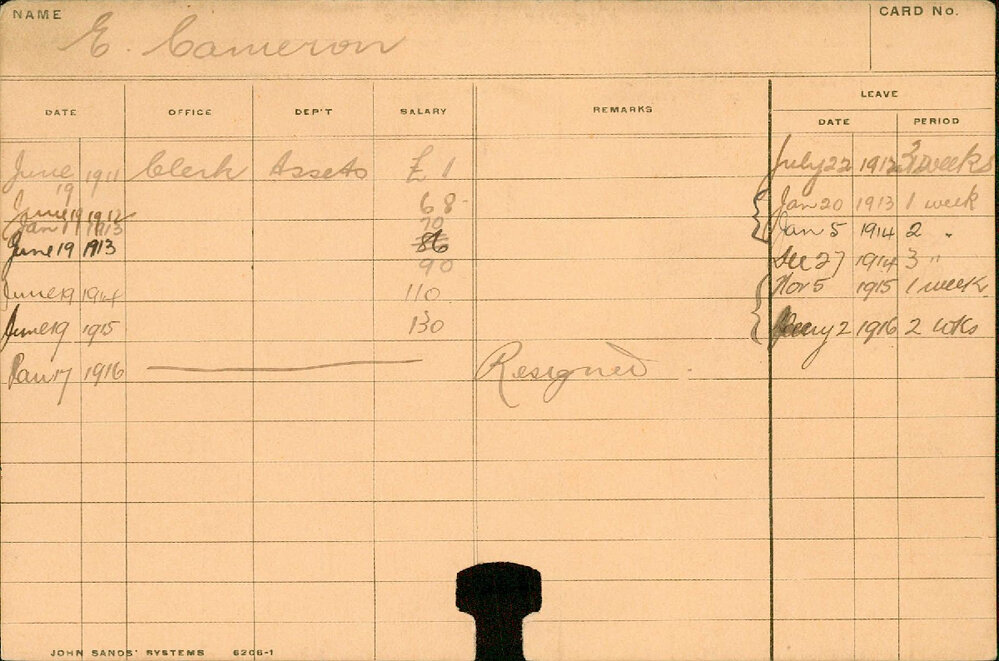 NAME
E. Cameron
CARD No.
DATE OFFICE DEP'T SALARY REMARKS LEAVE
DATE PERIOD
June 19 1911 Clerk Assets £ 1 July 22 1912 3 weeks
June 19 1912 68- Jan 20 1913 1 week
Jan 1 1913 70
June 19 1913 86 Jan 5 1914 2 "
90 Dec 27 1914 3 "
June 19 1914 110 Nov 5 1915 1 week
June 19 1915 130 2 1916 2 wks
Jan 17 1916 Resigned.
JOHN SANDS' SYSTEMS 6206-1